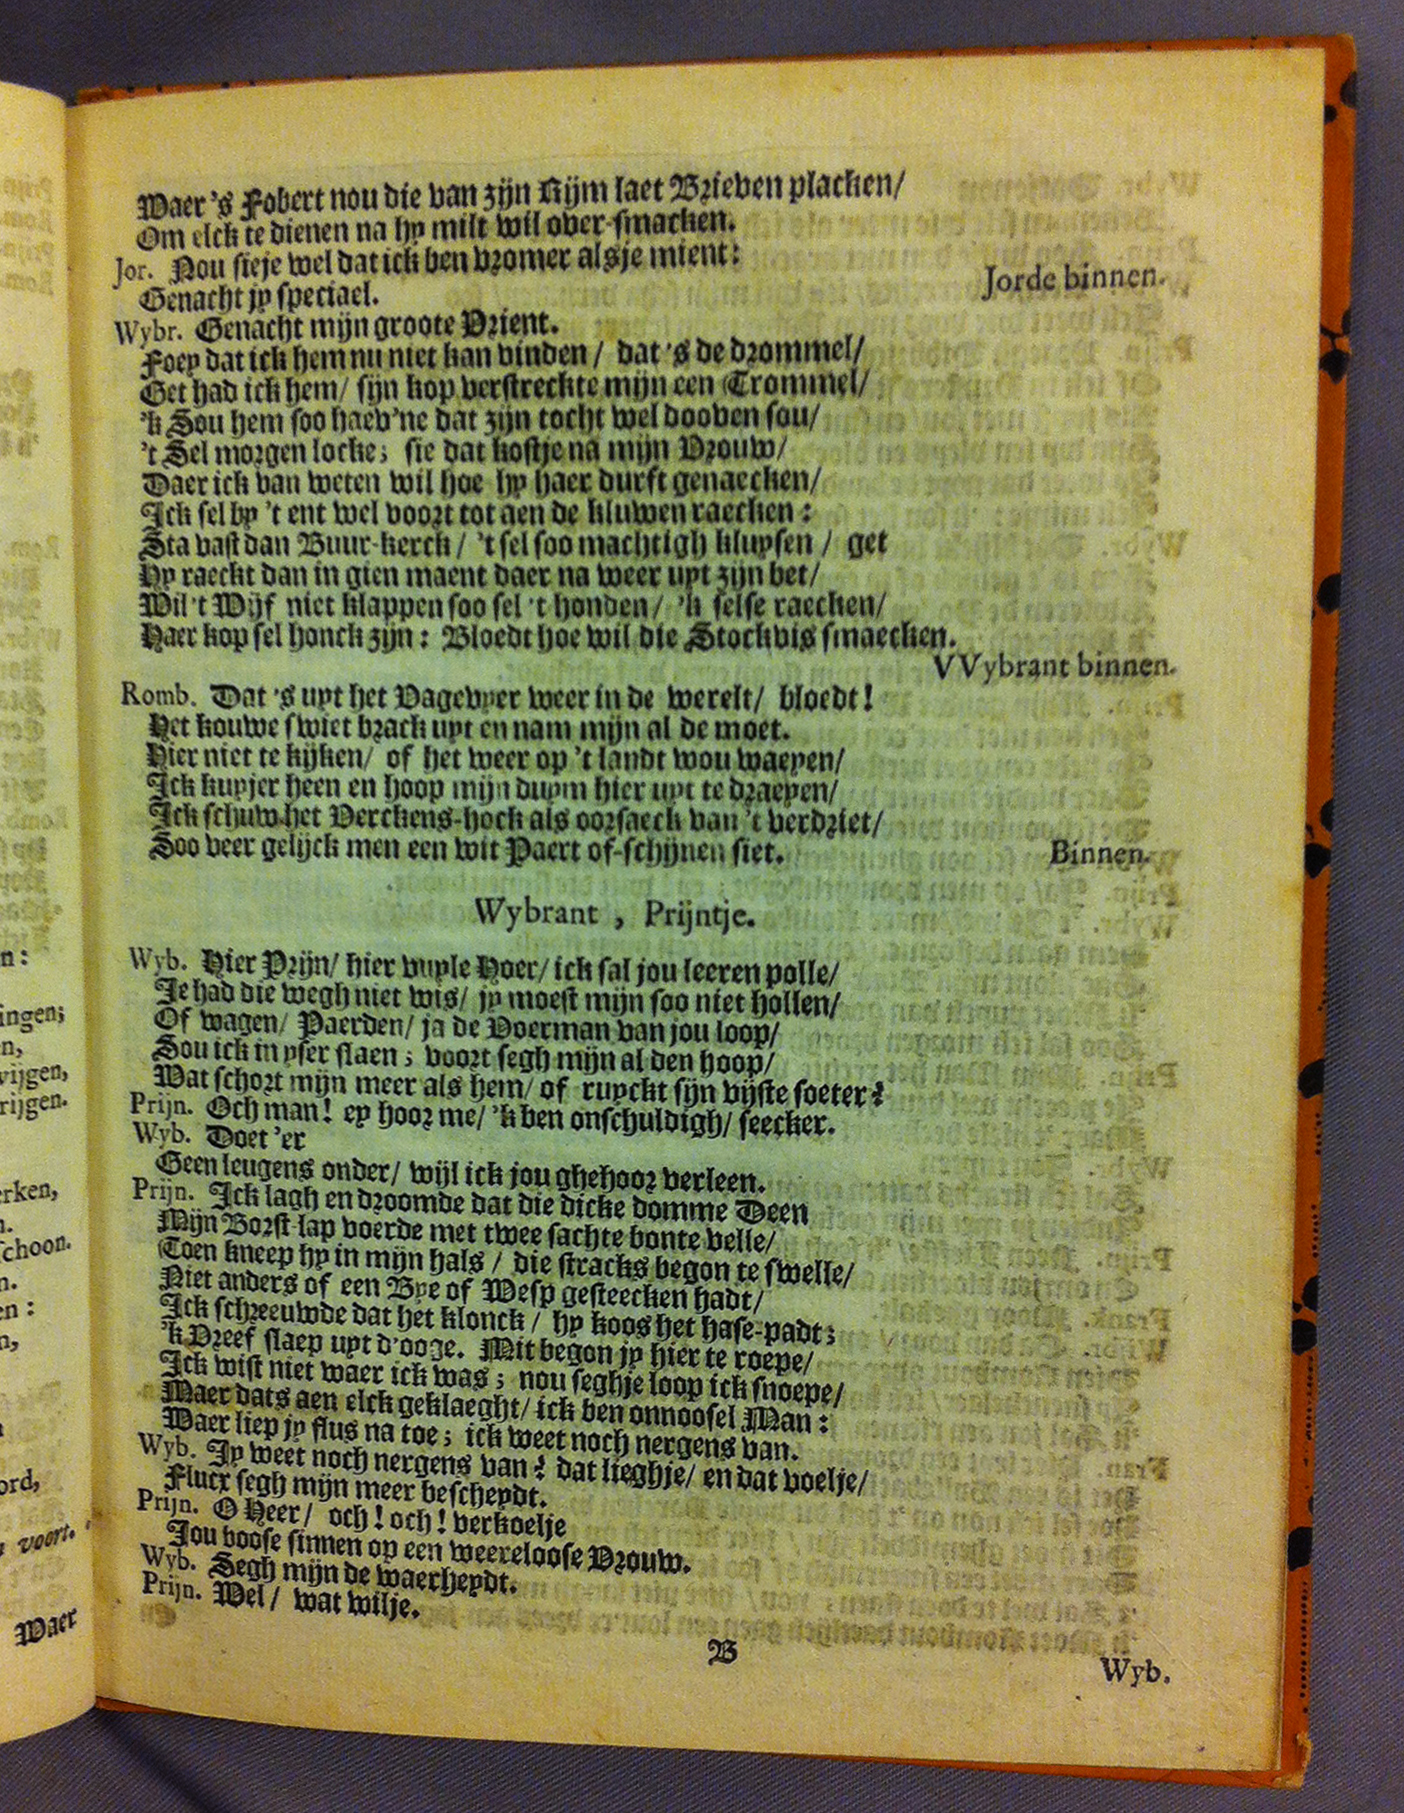 Waer 's Fobert nou die van zijn Rijm laet Brieven placken/
Om elck te dienen na hy milt wil over-smacken.
Jor. Nou sieje wel dat ick ben vromer alsje mient:
Genacht jy speciael.
Jorde binnen.
Wybr. Genacht mijn groote Vrient.
Foey dat ick hem nu niet kan vinden / dat 's de drommel/
Get had ick hem/ sijn kop verstreckte mijn een Trommel/
'k Sou hem soo haev'ne dat zijn tocht wel dooven sou/
't Sel morgen locke; sie dat kostje na mijn Vrouw/
Daer ick van weten wil hoe hy haer durft genaecken/
Ick sel by 't ent wel voort tot aen de kluwen raecken:
Sta vast dan Buur-kerck / 't sel soo machtigh kluysen / get
Hy raeckt dan in gien maent daer na weer uyt zijn bet/
Wil't Wijf niet klappen soo sel 't honden/ 'k selse raecken/
Haer kop sel honck zijn: Bloedt hoe wil die Stockvis smaecken.
VVybrant binnen.
Romb. Dat 's uyt het Vagevyer weer in de werelt/ bloedt!
Het kouwe swiet brack uyt en nam mijn al de moet.
Hier niet te kijken/ of het weer op 't landt wou waeyen/
Ick kuyjer heen en hoop mijn duym hier uyt te draeyen/
Ick schuw het Verckens-hock als oorsaeck van 't verdriet/
Soo veer gelijck men een wit Paert of-schijnen siet.
Binnen.
Wybrant , Prijntje.
Wyb. Hier Prijn/ hier vuyle Hoer/ ick sal jou leeren polle/
Je had die wegh niet wis/ jy moest mijn soo niet hollen/
Of wagen/ Paerden/ ja de Voerman van jou loop/
Sou ick in yser slaen; voort segh mijn al den hoop/
Wat schort mijn meer als hem/ of ruyckt sijn vijste soeter?
Prijn. Och man! ey hoor me/ 'k ben onschuldigh/ seecker.
Wyb. Doet 'er
Geen leugens onder/ wijl ick jou ghehoor verleen.
Prijn. Ick lagh en droomde dat die dicke domme Deen
Mijn Borst-lap voerde met twee sachte bonte velle/
Toen kneep hy in mijn hals / die stracks begon te swelle/
Niet anders of een Bye of Wesp gesteecken hadt/
Ick schreeuwde dat het klonck / hy koos het hase-padt;
'k Vreef slaep uyt d'ooge. Mit begon jy hier te roepe/
Ick wist niet waer ick was; nou seghje loop ick snoepe/
Maer dats aen elck geklaeght/ ick ben onnoosel Man:
Waer liep jy flus na toe; ick weet noch nergens van.
Wyb. Jy weet noch nergens van? dat lieghje/ en dat voelje/
Flucx segh mijn meer bescheydt.
Prijn. O Heer/ och! och! verkoelje
Jou boose sinnen op een weereloose Vrouw.
Wyb. Segh mijn de waerheydt.
Prijn. Wel/ wat wilje.
B
Wyb.